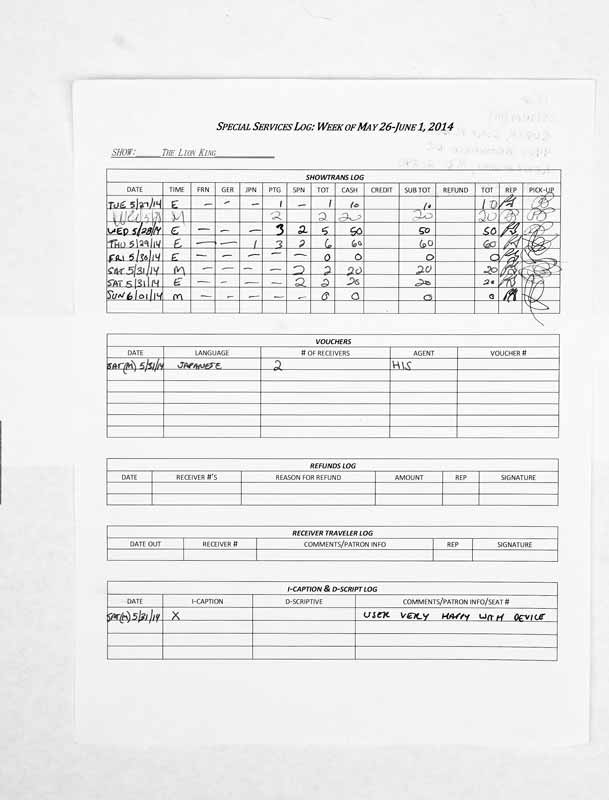 SPECIAL SERVICES LOG: WEEK OF MAY 26-JUNE 1, 2014
SHOW: THE LION KING
SHOWTRANS LOG
DATE TIME FRN GER JPN PTG SPN TOT CASH CREDIT SUB TOT REFUND TOT REP PICK-UP
TUE 5/27/14 E - - - 1 - 1 10 10 10
M 2 2 20 20 20
WED 5/28/14 E - - - 3 2 5 50 50 50
THU 5/29/14 E - - 1 3 2 6 60 60 60
FRI 5/30/14 E - - - - - 0 0 0 0
SAT 5/31/14 M - - - - 2 2 20 20 20
SAT 5/31/14 E - - - - 2 2 20 20 20
SUN 6/01/14 M - - - - - 0 0 0 0
VOUCHERS
DATE LANGUAGE # OF RECEIVERS AGENT VOUCHER #
SAT(M) 5/31/14 JAPANESE 2 HIS
REFUNDS LOG
DATE RECEIVER #'S REASON FOR REFUND AMOUNT REP SIGNATURE
RECEIVER TRAVELER LOG
DATE OUT RECEIVER # COMMENTS/PATRON INFO REP SIGNATURE
I-CAPTION & D-SCRIPT LOG
DATE I-CAPTION D-SCRIPTIVE COMMENTS/PATRON INFO/SEAT #
5/31/14 X USER VERY HAPPY WITH DEVICE